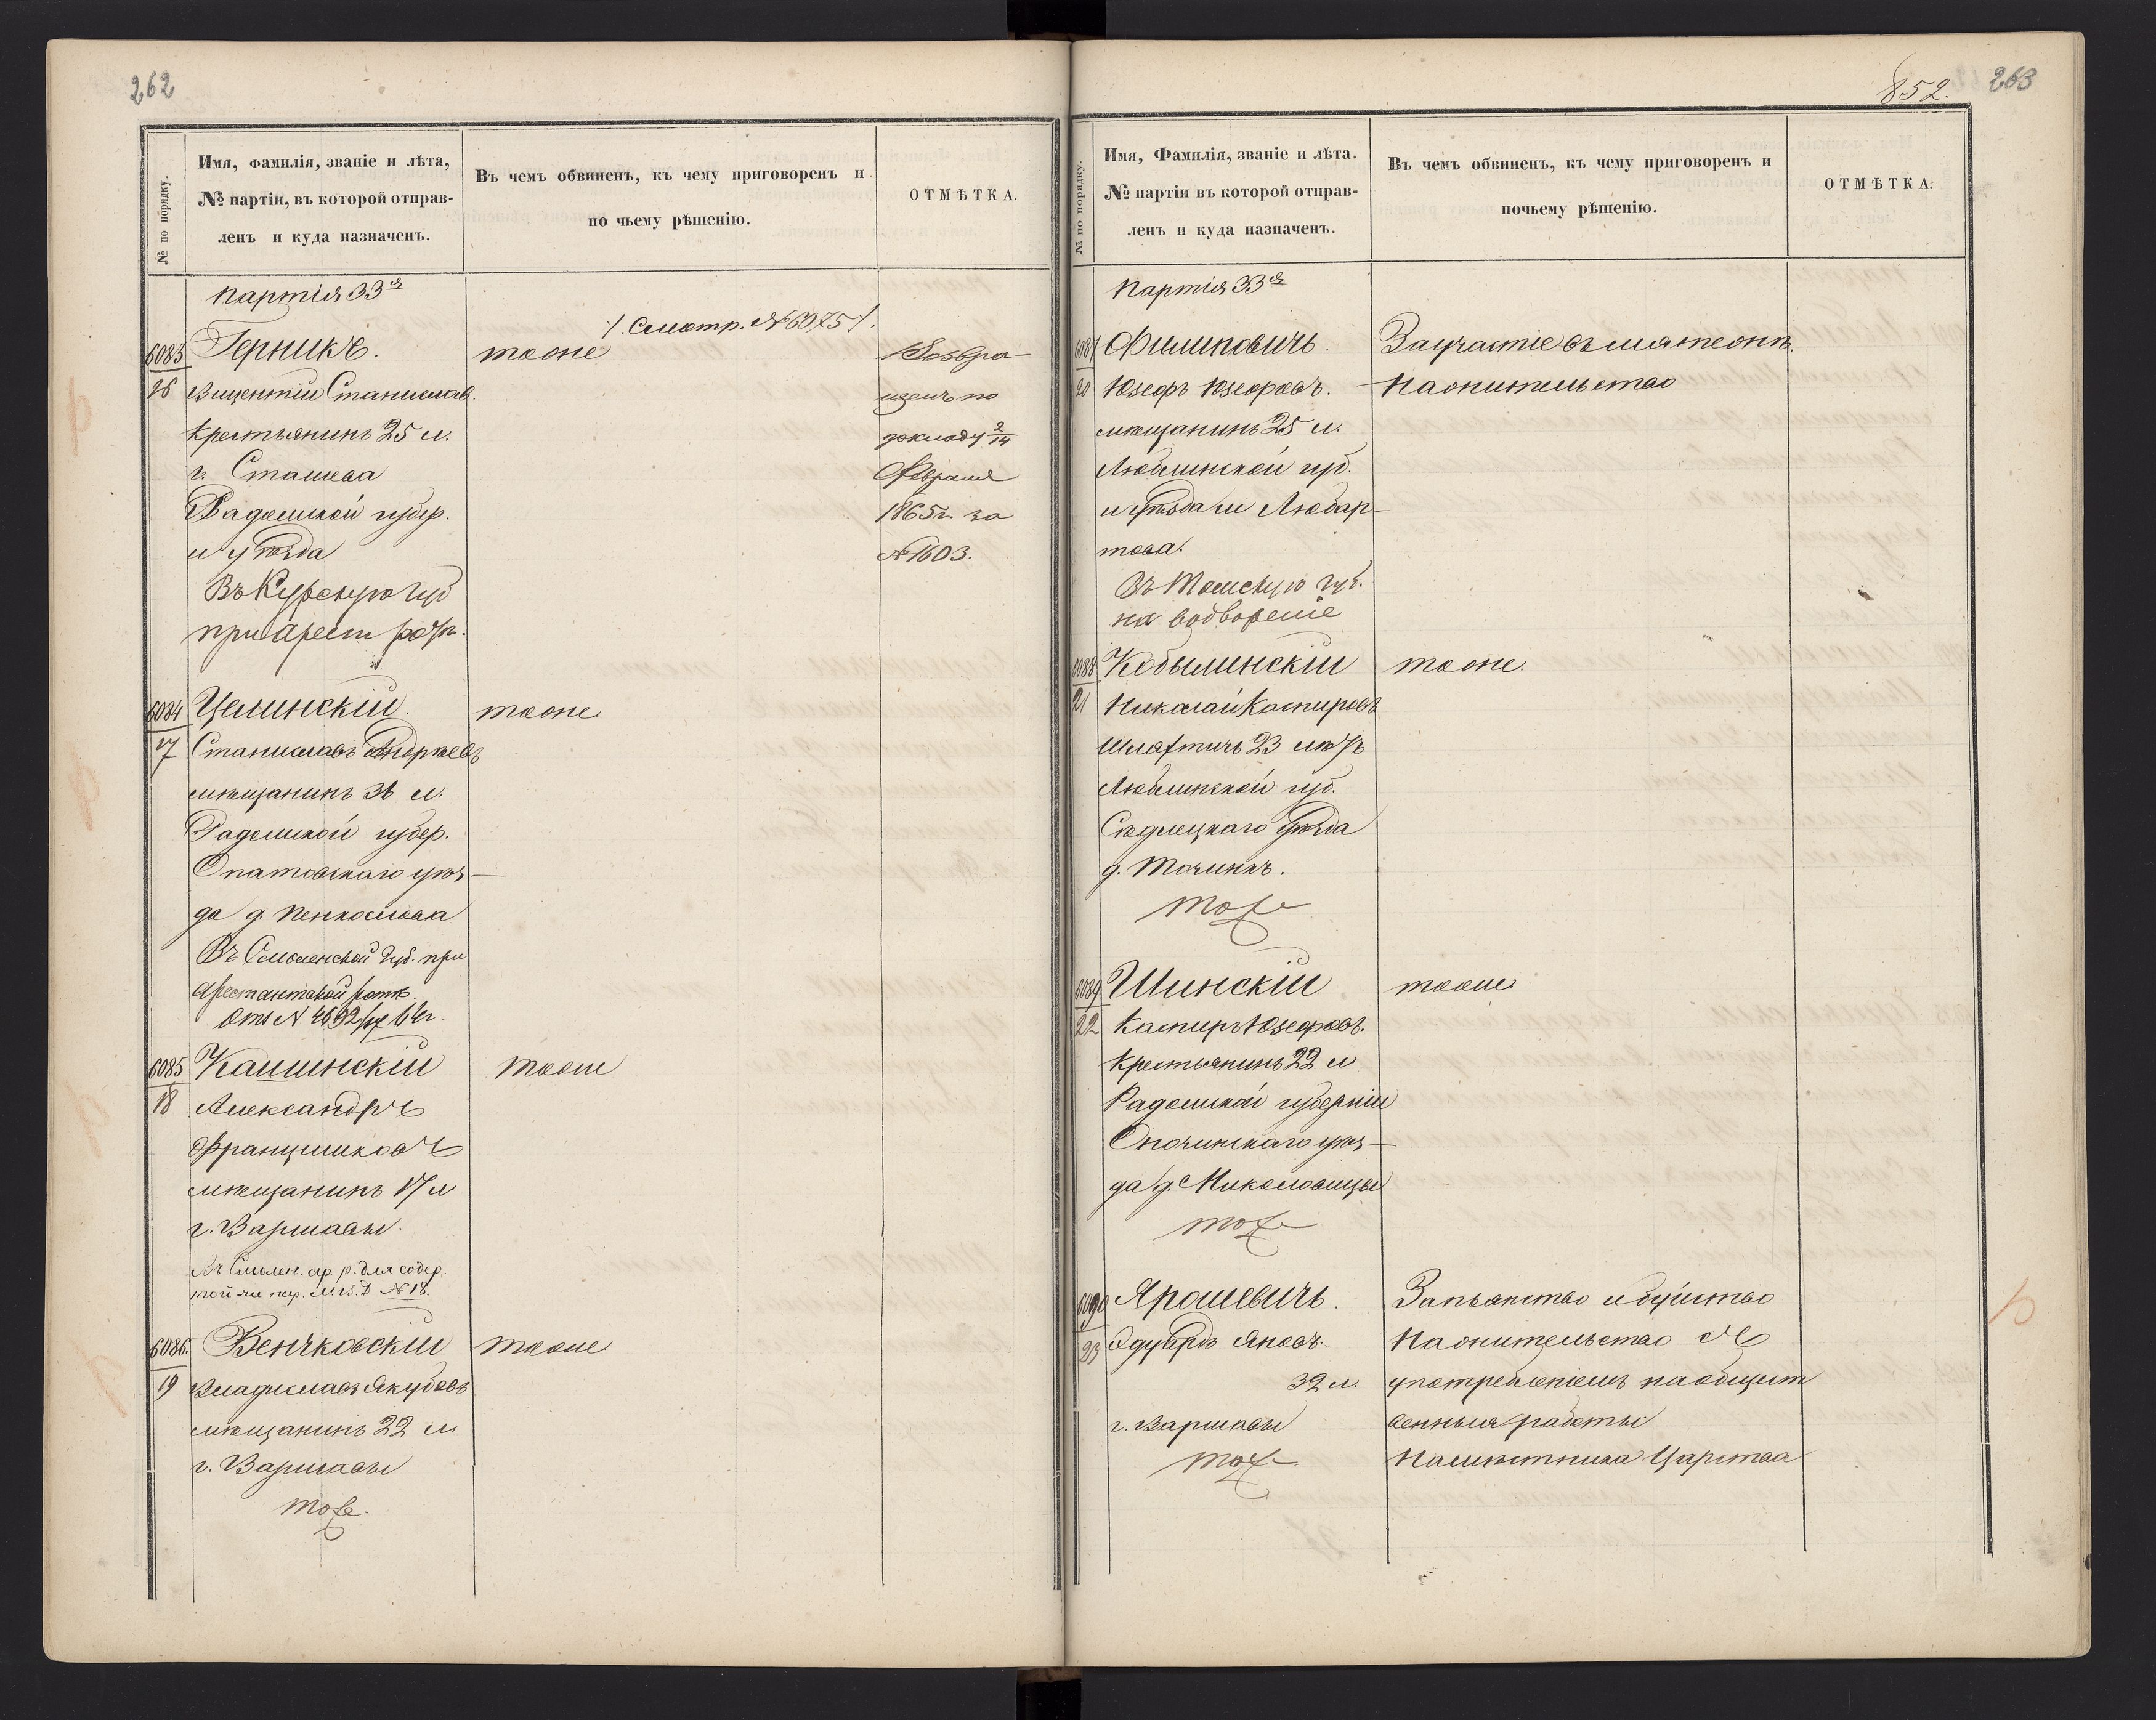 262
№ по порядку.
Имя, фамилія, званіе и лѣта,
№ партіи, въ которой отправ-
ленъ и куда назначенъ.
Въ чемъ обвиненъ, къ чему приговоренъ и
по чьему рѣшенію.
ОТМѢТКА.
Партія 33я
/. Смотр. №6075 /.
6083
16
Герникъ.
Вицентій Станислав.
Крестьянинъ 25 л.
г. Сташева
Радомской губер.
и уѣзда
Въ Курскую губ
при арест рот.
тоже
Возвра-
щенъ по
докладу 2/14
Февраля
1865 г. за
№1603.
6084
17
Целинскій.
Станиславъ Андржеевъ
мѣщанинъ 36 л.
Радомской губер.
Опатовскаго уѣз-
да д.
Въ Смоленской Губ. при
Арестантской ротѣ
тоже
6085
18
Кашинскій
Александръ
Францишковъ
мѣщанинъ 17 л
г. Варшавы.
Въ Смолен. ар. р. для содер.
№18.
тоже
6086.
19
Венчковскій
Владиславъ Якубовъ
мѣщанинъ 22 л
г. Варшавы
тоже.
тоже
852.
263
№ по порядку.
Имя, Фамилія, званіе и лѣта.
№ партіи въ которой отправ-
ленъ и куда назначенъ.
Въ чемъ обвиненъ, къ чему приговоренъ и
почьему рѣшенію.
ОТМѢТКА.
Партія 33я
6087
20
Филиповичъ.
Юзефъ Юзефовъ.
мѣщанинъ 25 л.
Люблинской губ.
и уѣзда м Любар-
това.
Въ Томскую губ.
на водвореніе
За участіе въ мятежѣ.
На жительство
6088
21
Кобылинскій
Николай Касперовъ
Шляхтичъ 23 лѣтъ
Люблинской губ.
Сѣдлецкаго уѣзда
д. Точинкъ.
тоже
тоже.
6089
22
Шинскій
Касперъ Юзефовъ.
Крестьянинъ 22 л
Радомской губерніи
Опочинскаго уѣз-
да д. Миколовицы
тоже
тоже
6090
23
Ярошевичъ.
Эдуардъ Яновъ.
32 л.
г. Варшавы
тоже
За пьянство и буйство
На жительство съ
употребленіемъ на общест
венныя работы
Намѣстника Царства